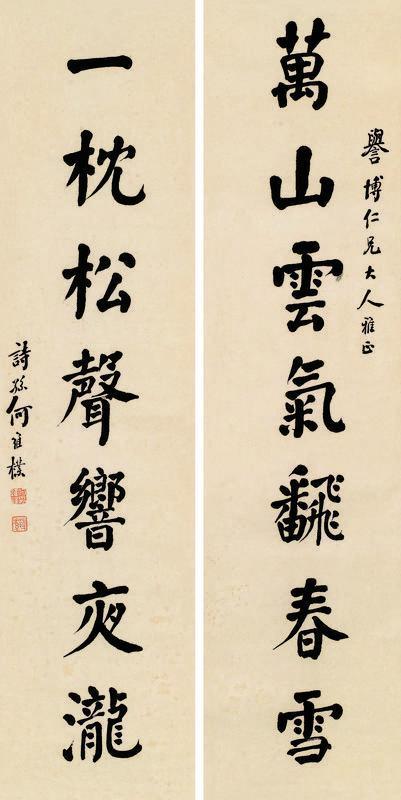 譽博仁兄大人雅正
萬山雲氣飜春雪
一枕松聲響夜瀧
詩孫何維樸